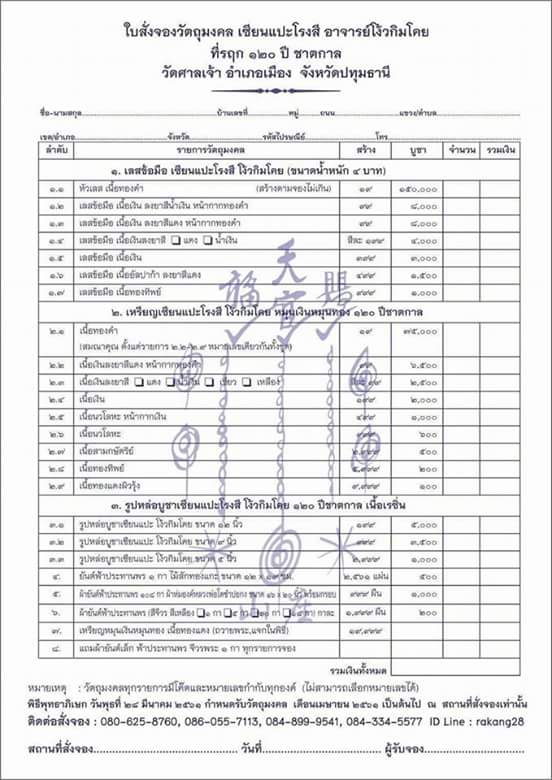 ใบสั่งจองวัตถุมงคล เซียนแปะโรงสี อาจารย์โง้วกิมโคย
ที่รฤก ๑๒๐ ปี ชาตกาล
วัดศาลเจ้า อำเภอเมือง จังหวัดปทุมธานี
ชื่อ-นามสกุล บ้านเลขที่ หมู่ ถนน แขวง/ตำบล
เขต/อำเภอ จังหวัด รหัสไปรษณีย์ โทร
ลำดับ รายการวัตถุมงคล สร้าง บูชา จำนวน รวมเงิน
๑. เลสข้อมือ เซียนแปะโรงสี โง้วกิมโคย (ขนาดน้ำหนัก ๔ บาท)
๑.๑ หัวเลส เนื้อทองคำ (สร้างตามจองไม่เกิน) ๑๙ ๑๕๐,๐๐๐
๑.๒ เลสข้อมือ เนื้อเงิน ลงยาสีน้ำเงิน หน้ากากทองคำ ๙๙ ๘,๐๐๐
๑.๓ เลสข้อมือ เนื้อเงิน ลงยาสีแดง หน้ากากทองคำ ๙๙ ๘,๐๐๐
๑.๔ เลสข้อมือ เนื้อเงินลงยาสี ☐ แดง ☐ น้ำเงิน สีละ ๑๙๙ ๔,๐๐๐
๑.๕ เลสข้อมือ เนื้อเงิน ๓๙๙ ๓,๐๐๐
๑.๖ เลสข้อมือ เนื้ออัลปาก้า ลงยาสีแดง ๔๙๙ ๑,๕๐๐
๑.๗ เลสข้อมือ เนื้อทองทิพย์ ๙๙๙ ๑,๐๐๐
天
福 官 賜
๒. เหรียญเซียนแปะโรงสี โง้วกิมโคย หมุนเงินหมุนทอง ๑๒๐ ปีชาตกาล
๒.๑ เนื้อทองคำ ๑๙ ๗๕,๐๐๐
(สมณาคุณ ตั้งแต่รายการ ๒.๒-๒.๙ หมายเลขเดียวกันทั้งชุด)
๒.๒ เนื้อเงินลงยาสีแดง หน้ากากทองคำ ๙๙ ๖,๕๐๐
๒.๓ เนื้อเงินลงยาสี ☐ แดง ☐ น้ำเงิน ☐ เขียว ☐ เหลือง สีละ ๙๙ ๒,๕๐๐
๒.๔ เนื้อเงิน ๑๙๙ ๒,๐๐๐
๒.๕ เนื้อนวโลหะ หน้ากากเงิน ๔๙๙ ๑,๐๐๐
๒.๖ เนื้อนวโลหะ ๙๙๙ ๖๐๐
๒.๗ เนื้อสามกษัตริย์ ๒,๙๙๙ ๕๐๐
๒.๘ เนื้อทองทิพย์ ๕,๙๙๙ ๒๐๐
๒.๙ เนื้อทองแดงผิวรุ้ง ๙,๙๙๙ ๑๐๐
๓. รูปหล่อบูชาเซียนแปะโรงสี โง้วกิมโคย ๑๒๐ ปีชาตกาล เนื้อเรซิ่น
๓.๑ รูปหล่อบูชาเซียนแปะ โง้วกิมโคย ขนาด ๑๒ นิ้ว ๑๙๙ ๕,๐๐๐
๓.๒ รูปหล่อบูชาเซียนแปะ โง้วกิมโคย ขนาด ๙ นิ้ว ๓๙๙ ๓,๐๐๐
๓.๓ รูปหล่อบูชาเซียนแปะ โง้วกิมโคย ขนาด ๕ นิ้ว ๒,๙๙๙ ๑,๐๐๐
๔. ยันต์ฟ้าประทานพร ๑ กา ไม้สักทองแกะ ขนาด ๑๒ x ๑๙ ซม. ๒,๕๖๑ แผ่น ๕๐๐
๕. ผ้ายันต์ฟ้าประทานพร ๑๐๘ กา ผ้าห่มองค์หลวงพ่อโตซำปอกง ขนาด ๑๖ x ๒๐ นิ้ว พร้อมกรอบ ๙๙๙ ผืน ๑,๐๐๐
๖. ผ้ายันต์ฟ้าประทานพร (สีจีวร สีเหลือง ☐ ๑ กา ☐ ๕ กา ☐ ๑๐ กา ☐ ๑๘ กา) กาละ ๑,๙๙๙ ผืน ๒๐๐
๗. เหรียญหมุนเงินหมุนทอง เนื้อทองแดง (ถวายพระ,แจกในพิธี) ๑๙,๙๙๙
๘. แถมผ้ายันต์เล็ก ฟ้าประทานพร จีวรพระ ๑ กา ทุกรายการจอง
รวมเงินทั้งหมด
หมายเหตุ : วัตถุมงคลทุกรายการมีโค๊ตและหมายเลขกำกับทุกองค์ (ไม่สามารถเลือกหมายเลขได้)
พิธีพุทธาภิเษก วันพุธที่ ๒๘ มีนาคม ๒๕๖๑ กำหนดรับวัตถุมงคล เดือนเมษายน ๒๕๖๑ เป็นต้นไป ณ สถานที่สั่งจองเท่านั้น
ติดต่อสั่งจอง : 080-625-8760, 086-055-7113, 084-899-9541, 084-334-5577 ID Line : rakang28
สถานที่สั่งจอง วันที่ ผู้รับจอง